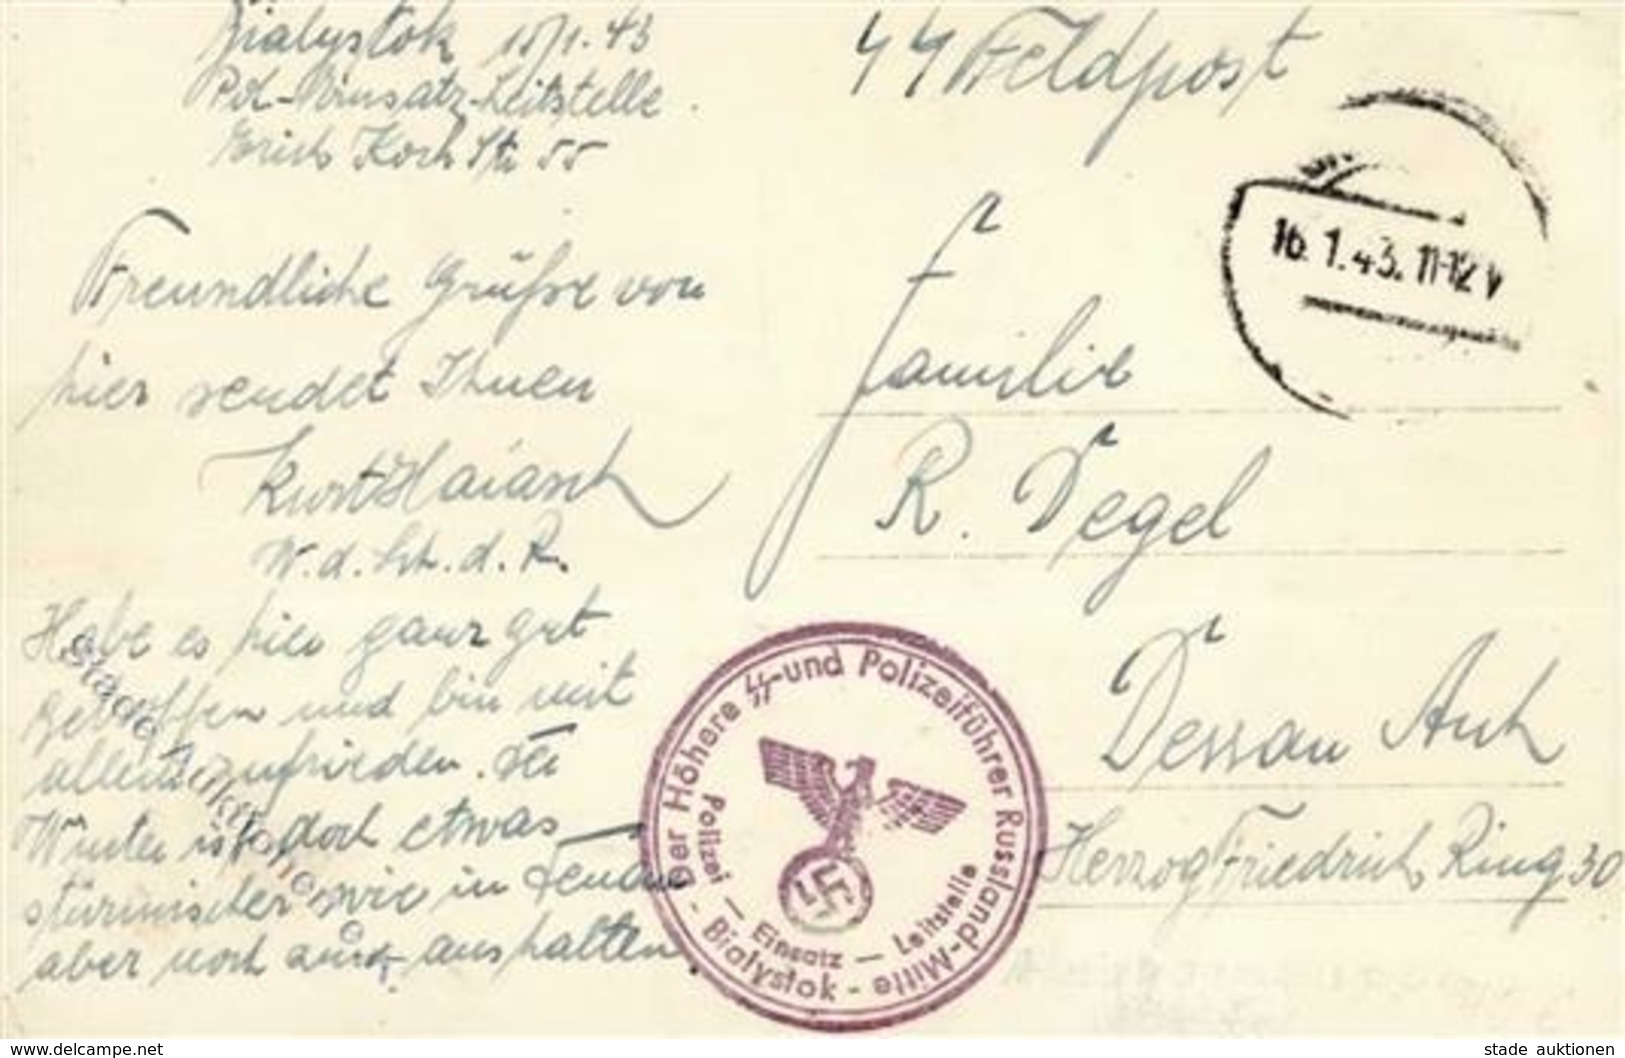 Bialystok 15/1.43
Pol-Einsatz-Leitstelle.
Erich Koch Str 55
Freundliche Grüße von
hier sendet Ihnen
Kurt
W.d.Sch.d.R.
Habe es hier ganz gut
getroffen und bin mit
allem zufrieden. Der
Winter ist doch etwas
stürmischer wie in Dessau
aber noch auszuhalten.
SS Feldpost
16.1.43.11-12 V
Familie
R. Degel
Dessau Anh
Herzog Friedrich Ring 30
Der Höhere SS-und Polizeiführer Russland-Mitte - Bialystok -
Polizei — Einsatz — Leitstelle
stade auktionen
www.delcampe.net
stade auktionen